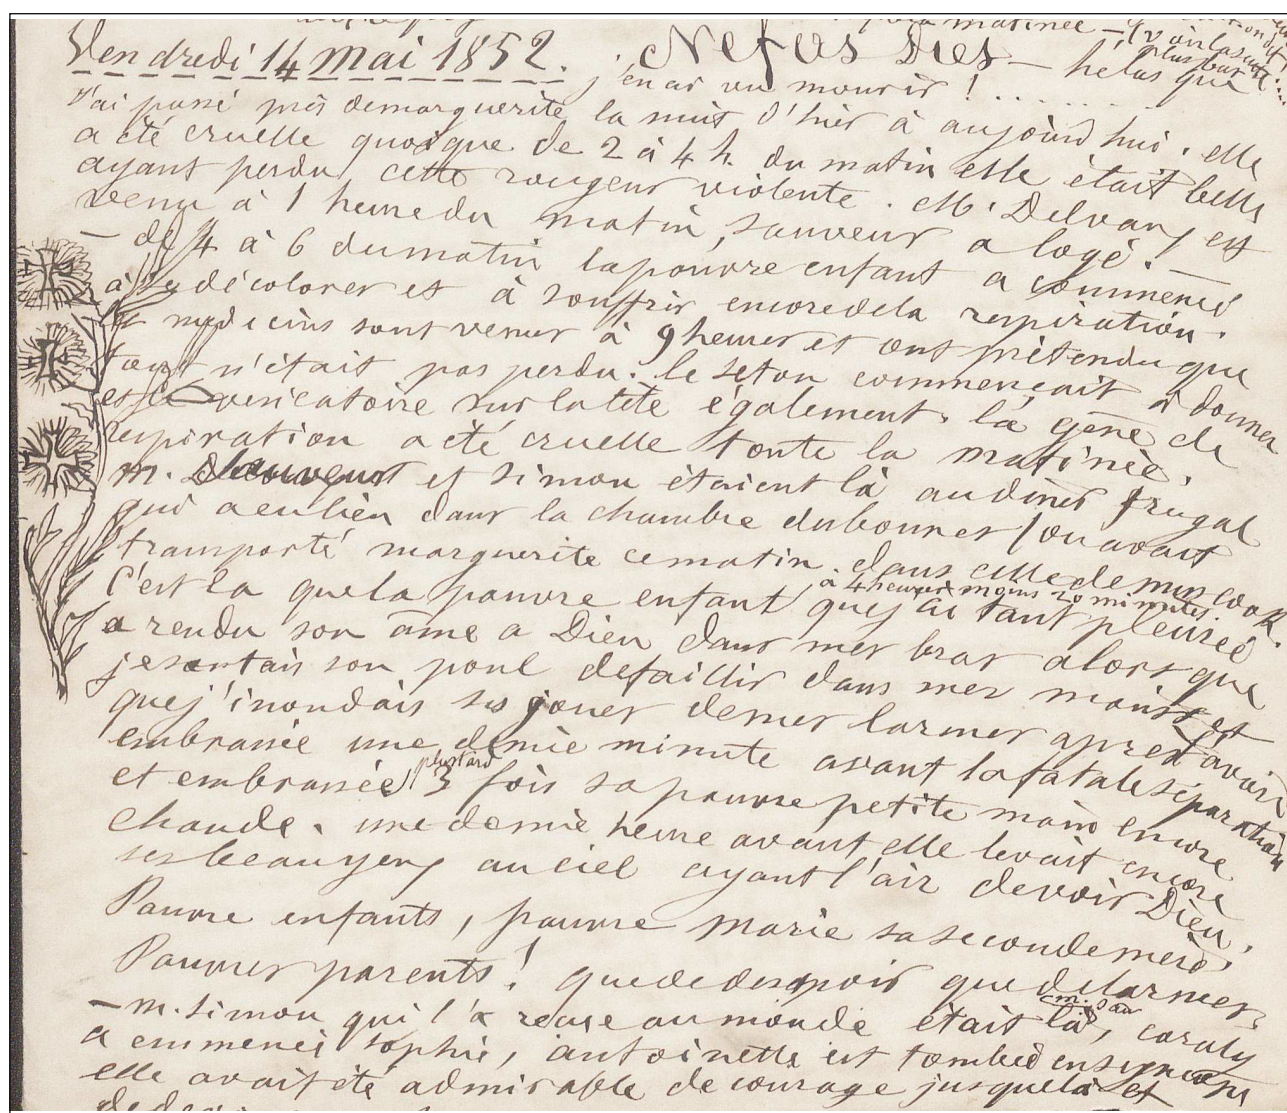 matinée – (voir la suite
Vendredi 14 mai 1852. Nefas Dies – hélas que plus bas)
j'en ai vu mourir ! . . . . . . . .
J'ai passé près de marguerite la nuit d'hier à aujourd'hui. elle
a été cruelle quoique de 2 à 4 h. du matin elle était belle
ayant perdu cette rougeur violente. M. Delvaux est
venu à 1 heure du matin, sauveur a logé.
– de 4 à 6 du matin la pauvre enfant a commencé
à se décolorer et à souffrir encore de la respiration.
les médecins sont venus à 9 heures et ont prétendu que
tout n'était pas perdu. le séton commençait à donner
et le vésicatoire sur la tête également. la gêne de
respiration a été cruelle toute la matinée.
m. sauveur et simon étaient là au diner frugal
qui a eu lieu dans la chambre du bonnes / on avait
transporté marguerite ce matin dans celle de miss cook.
C'est la que la pauvre enfant, à 4 heures moins 20 minutes. que j'ai tant pleurée
a rendu son âme a Dieu dans mes bras alors que
je sentais son poul defaillir dans mes mains et
que j'inondais ses joues de mes larmes apres l'avoir
embrassée une demie minute avant la fatale séparation
et embrassée plus tard 3 fois sa pauvre petite main encore
chaude. une demie heure avant elle levait encore
ses beau yeux au ciel ayant l'air de voir Dieu.
Pauvre enfants, pauvre marie sa seconde mère,
Pauvres parents! que de desespoir que de larmes.
– m. simon qui l'a reçue au monde était là, m. sau coraly
a emmenés sophie, antoinette est tombée en syncope
elle avait été admirable de courage jusque là et